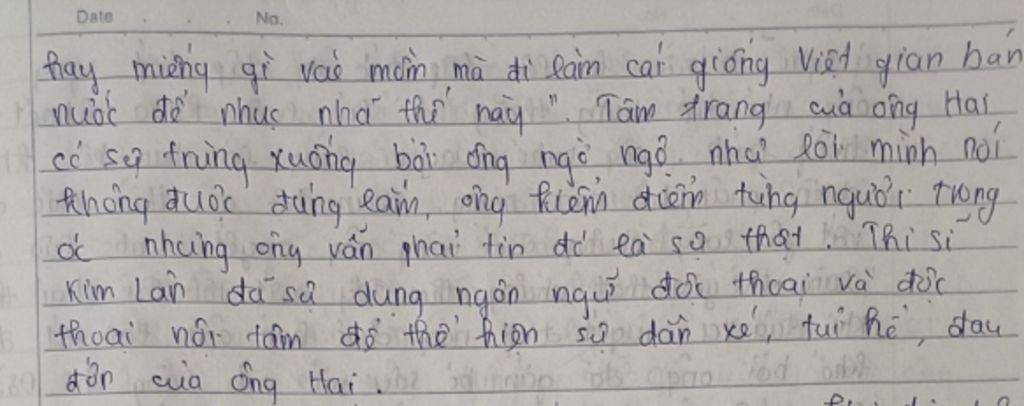 Date No.
hay miếng gì vào mồm mà đi làm cái giống Việt gian bán
nước để nhục nhã thế này". Tâm trạng của ông Hai
có sự trùng xuống bởi ông ngờ ngợ như lời mình nói
không được đúng lắm, ông kiểm điểm từng người trong
óc nhưng ông vẫn phải tin đó là sự thật. Thi sĩ
Kim Lân đã sử dụng ngôn ngữ độc thoại và độc
thoại nội tâm để thể hiện sự dằn xé, tủi hổ, đau
đớn của ông Hai.